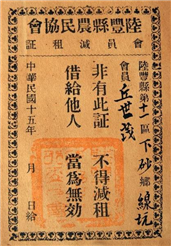 陸豐縣農民協會
會員減租証
陸豐縣第十一區下砂鄉線坑
會員丘世茂
非有此証不得減租
借給他人當為無効
中華民國十五年 月 日給